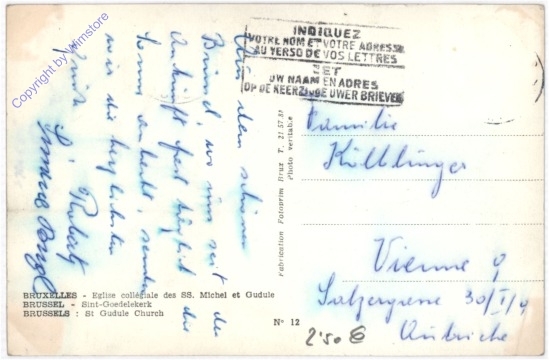 Copyright by Wimstore
INDIQUEZ
VOTRE NOM ET VOTRE ADRESSE
AU VERSO DE VOS LETTRES
MET
UW NAAM EN ADRES
OP DE KEERZIJDE UWER BRIEVEN
Aus dem schönen
wo uns seit der
Ankunft fast täglich die
Sonne senden
wir die herzlichsten
Familie
Vienne 9
Salzergasse 30/I/9
Autriche
Fabrication Fotoprim Brux T. 21.57.81
Photo véritable
BRUXELLES - Eglise collégiale des SS. Michel et Gudule
BRUSSEL - Sint-Goedelekerk
BRUSSELS : St Gudule Church
N° 12
2'50 €